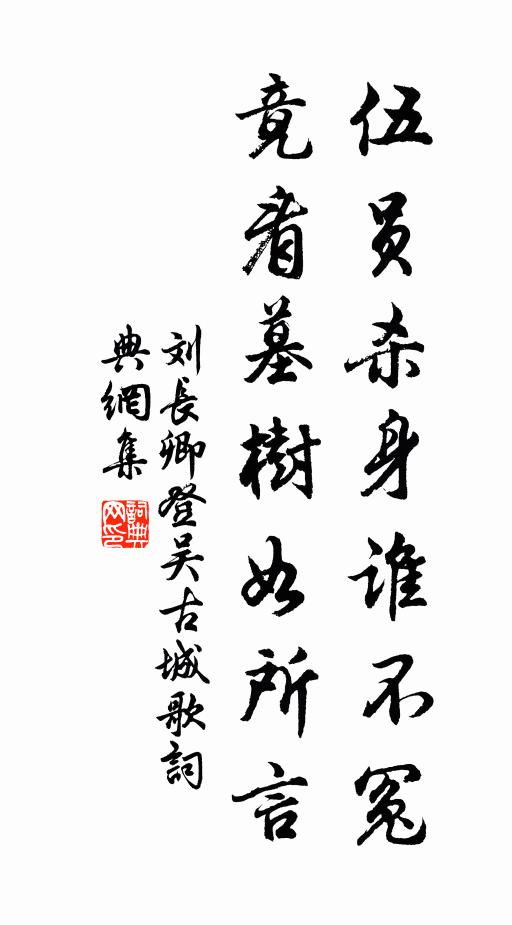 伍员杀身谁不冤
竟看墓樹如所言
刘長卿登吴古城歌詞
典網集
詞典网印